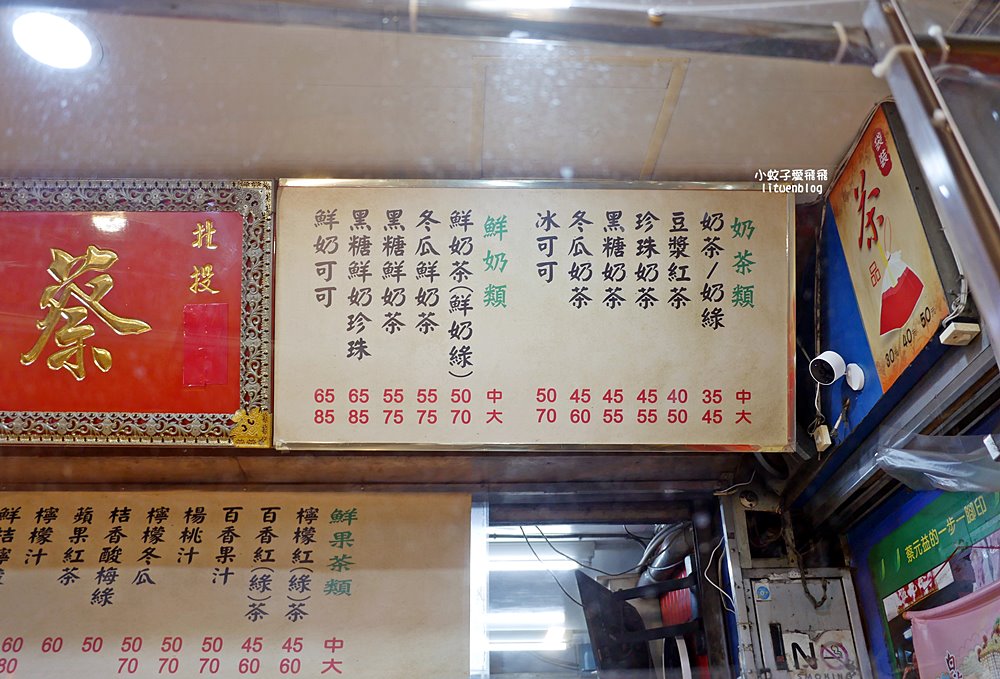 小蚊子愛飛飛
lituenblog
北投
蔡
奶茶類 中 大
奶茶/奶綠 35 45
豆漿紅茶 40 50
珍珠奶茶 45 55
黑糖奶茶 45 55
冬瓜奶茶 45 60
冰可可 50 70
鮮奶類 中 大
鮮奶茶(鮮奶綠) 50 70
冬瓜鮮奶茶 55 75
黑糖鮮奶茶 55 75
黑糖鮮奶珍珠 65 85
鮮奶可可 65 85
鮮果茶類 中 大
檸檬紅(綠)茶 45 60
百香紅(綠)茶 45 60
百香果汁 50 70
楊桃汁 50 70
檸檬冬瓜 50 70
桔香酸梅綠 50
蘋果紅茶 50
檸檬汁 60
60
80
茶
品
30元
40元
50元
蔡元益的一步一腳印
NO
SMOKING